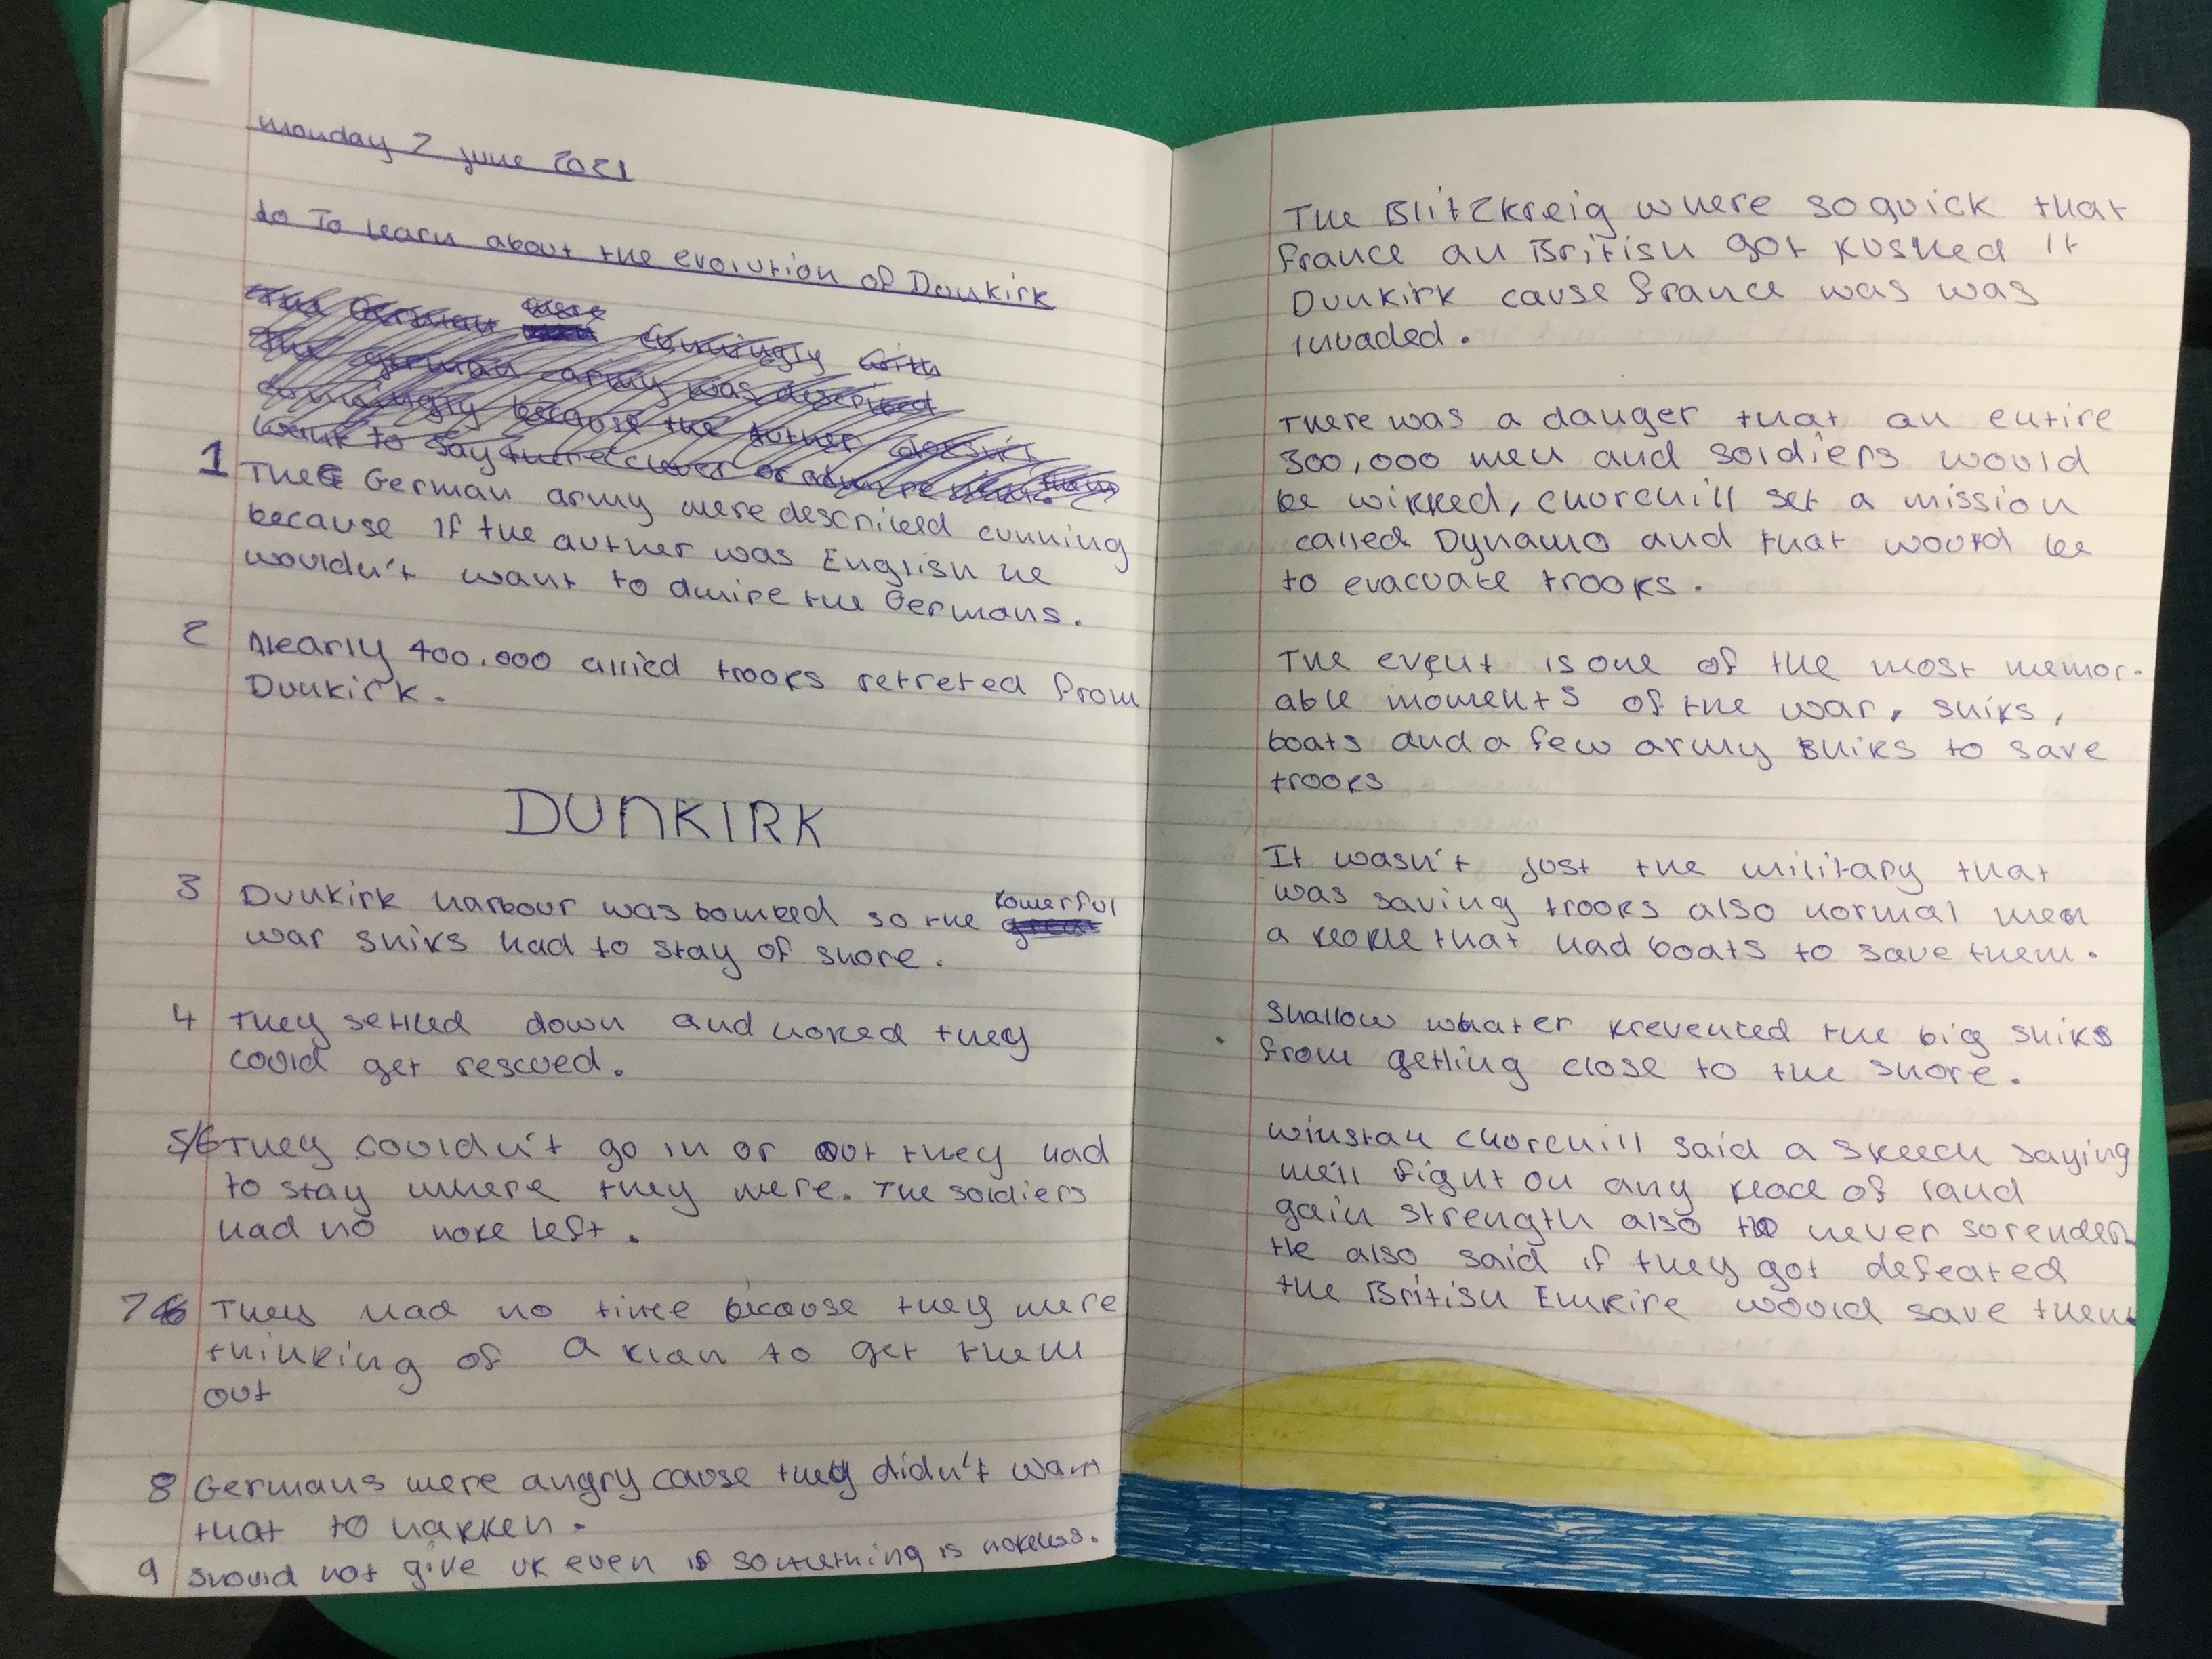 monday 7 june 2021
Lo To learn about the evolution of Dunkirk
The German were cunningly with
The german army was described
cunningly because the auther doesn't
want to say there clever or admire them.
1 The German army were described cunning
because if the auther was English he
wouldn't want to dmire the Germans.
2 Nearly 400.000 allied troops retreted from
Dunkirk.
DUNKIRK
3 Dunkirk harbour was bombed so the powerful great
war ships had to stay of shore.
4 They settled down and hoped they
could get rescued.
5/6 They couldn't go in or out they had
to stay where they were. The soldiers
had no hope left.
7 They had no time because they were
thinking of a plan to get them
out
8 Germans were angry cause they didn't want
that to happen.
9 Should not give up even if something is hopeless.
The Blitzkreig where so quick that
france an British got pushed it
Dunkirk cause france was was
invaded.
There was a danger that an entire
300,000 men and soldiers would
be wipped, churchill set a mission
called Dynamo and that would be
to evacuate troops.
The event is one of the most memor-
able moments of the war, ships,
boats and a few army ships to save
troops
It wasn't just the military that
was saving troops also normal men
a people that had boats to save them.
Shallow whater prevented the big ships
from getting close to the shore.
Winstan churchill said a speech saying
we'll fight on any peace of land
gain strength also to never surender
He also said if they got defeated
the British Empire would save them